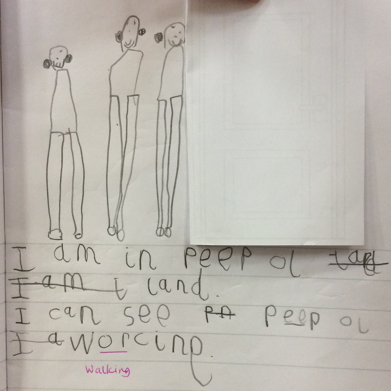 I am in peep ol tad
I am t land.
I can see pa peep ol
I a worcinp.
Walking